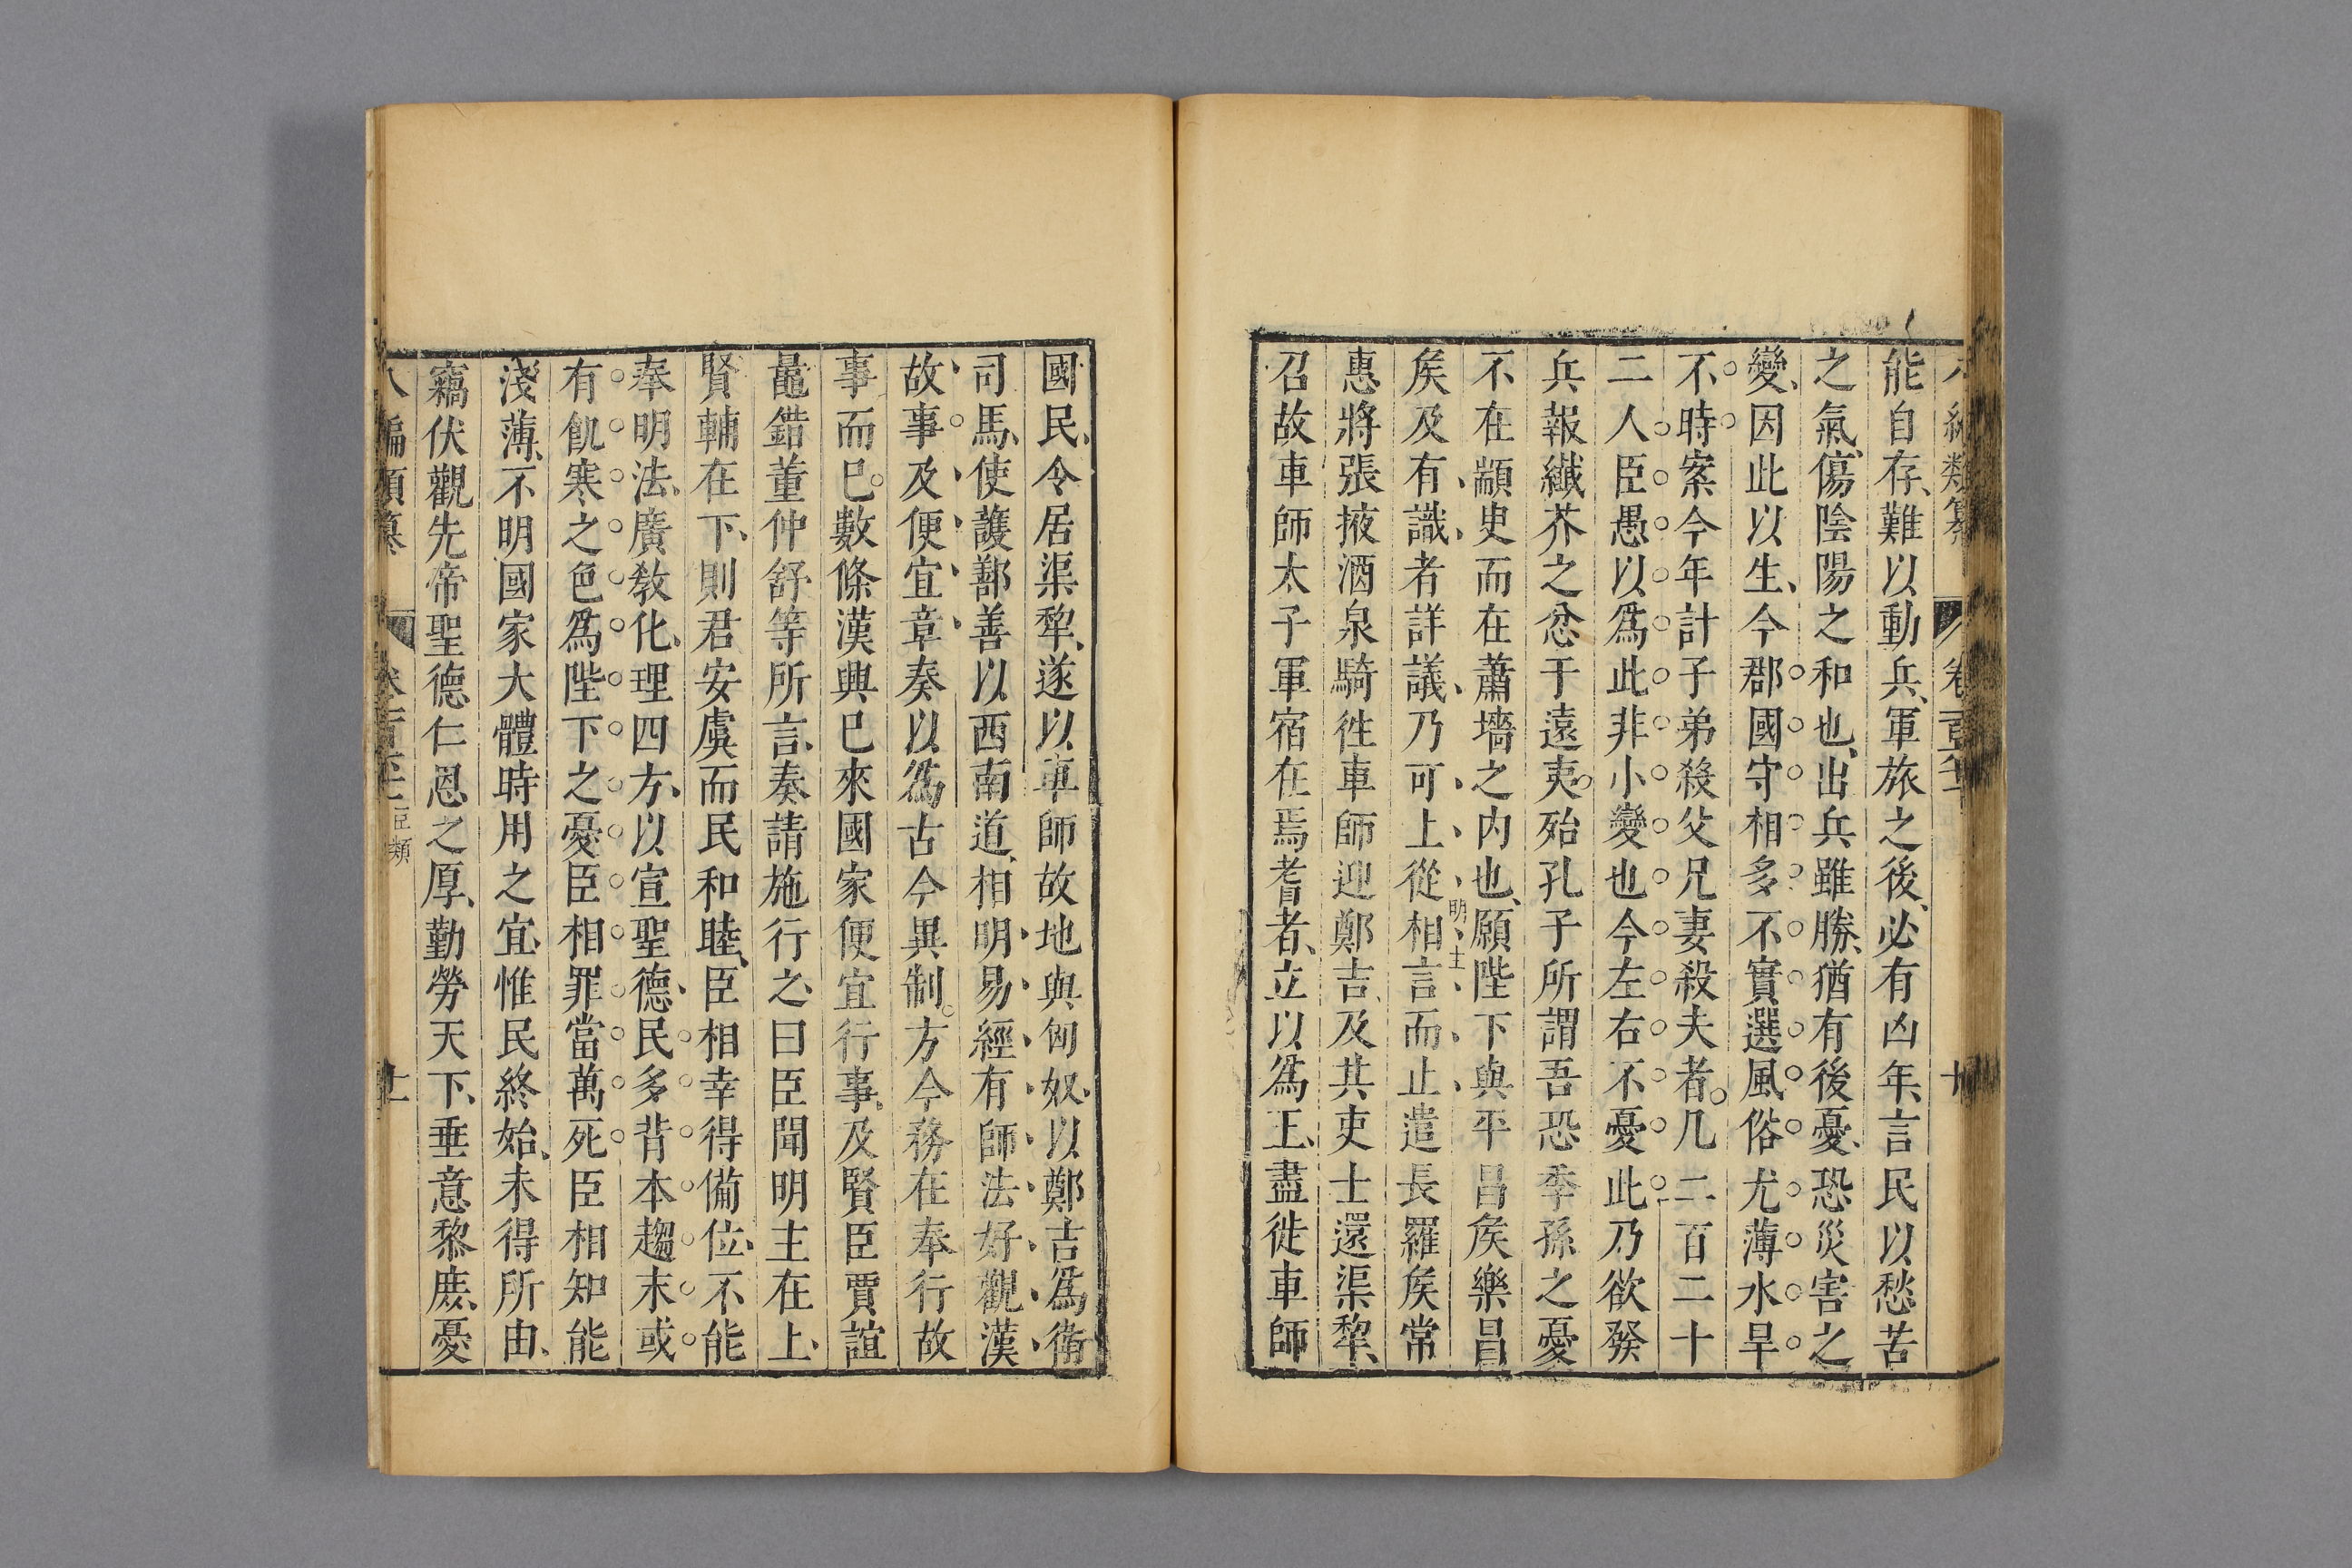 八編類纂 卷一百十 十
能自存難以動兵軍旅之後必有凶年言民以愁苦
之氣傷陰陽之和也出兵雖勝猶有後憂恐災害之
變因此以生今郡國守相多不實選風俗尤薄水旱
不時案今年計子弟殺父兄妻殺夫者凢二百二十
二人臣愚以爲此非小變也今左右不憂此乃欲發
兵報纎芥之忿于遠夷殆孔子所謂吾恐季孫之憂
不在顓臾而在蕭墻之内也願陛下與平昌矦樂昌
明主
矦及有識者詳議乃可上從相言而止遣長羅矦常
惠將張掖酒泉騎徃車師迎鄭吉及其吏士還渠犂
召故車師太子軍宿在焉耆者立以爲王盡徙車師
國民令居渠犂遂以車師故地與匈奴以鄭吉爲衛
司馬使護鄯善以西南道相明易經有師法好觀漢
故事及便宜章奏以爲古今異制方今務在奉行故
事而已數條漢興已來國家便宜行事及賢臣賈誼
鼂錯董仲舒等所言奏請施行之曰臣聞明主在上
賢輔在下則君安虞而民和睦臣相幸得備位不能
奉明法廣敎化理四方以宣聖德民多背本趨末或
有飢寒之色爲陛下之憂臣相罪當萬死臣相知能
淺薄不明國家大體時用之宜惟民終始未得所由
竊伏觀先帝聖德仁恩之厚勤勞天下垂意黎庶憂
八編類纂 臣類 十一